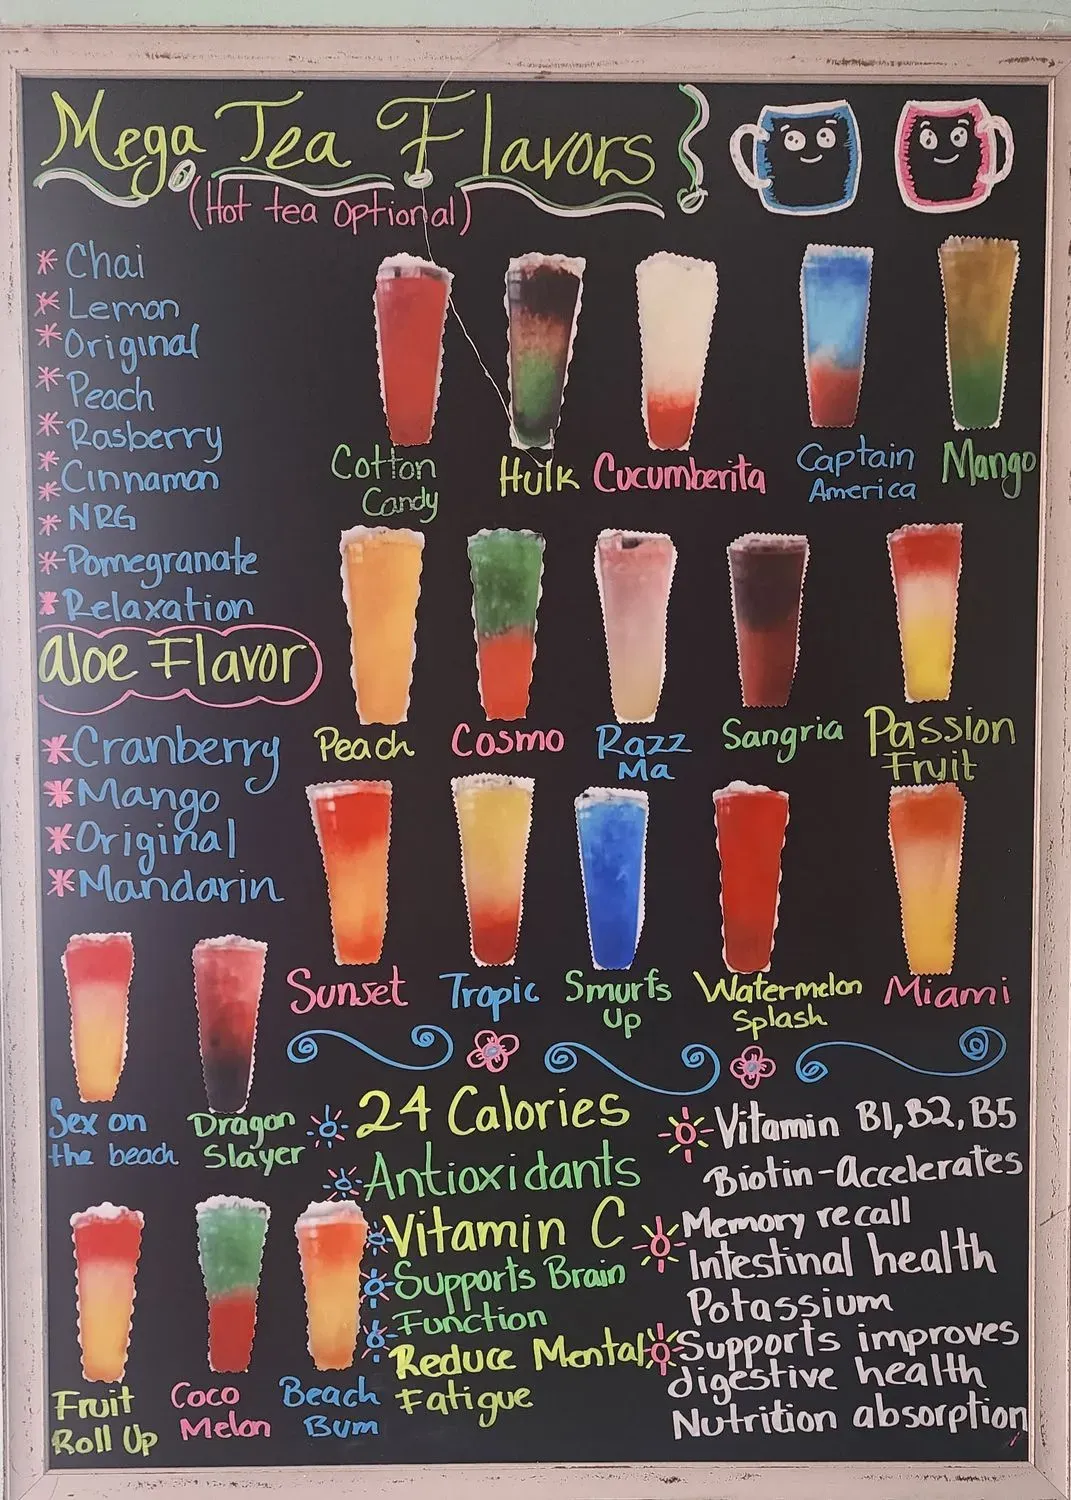 Mega Tea Flavors
(Hot tea Optional)
* Chai
* Lemon
* Original
* Peach
* Rasberry
* Cinnamon
* NRG
* Pomegranate
* Relaxation
Aloe Flavor
* Cranberry
* Mango
* Original
* Mandarin
Cotton
Candy
Hulk
Cucumberita
Captain
America
Mango
Peach
Cosmo
Razz
Ma
Sangria
Passion
Fruit
Sunset
Tropic
Smurfs
Up
Watermelon
Splash
Miami
Sex on
the beach
Dragon
Slayer
Fruit
Roll Up
Coco
Melon
Beach
Bum
24 Calories
Antioxidants
Vitamin C
Supports Brain
Function
Reduce Mental
Fatigue
Vitamin B1, B2, B5
Biotin-Accelerates
Memory recall
Intestinal health
Potassium
Supports improves
digestive health
Nutrition absorption